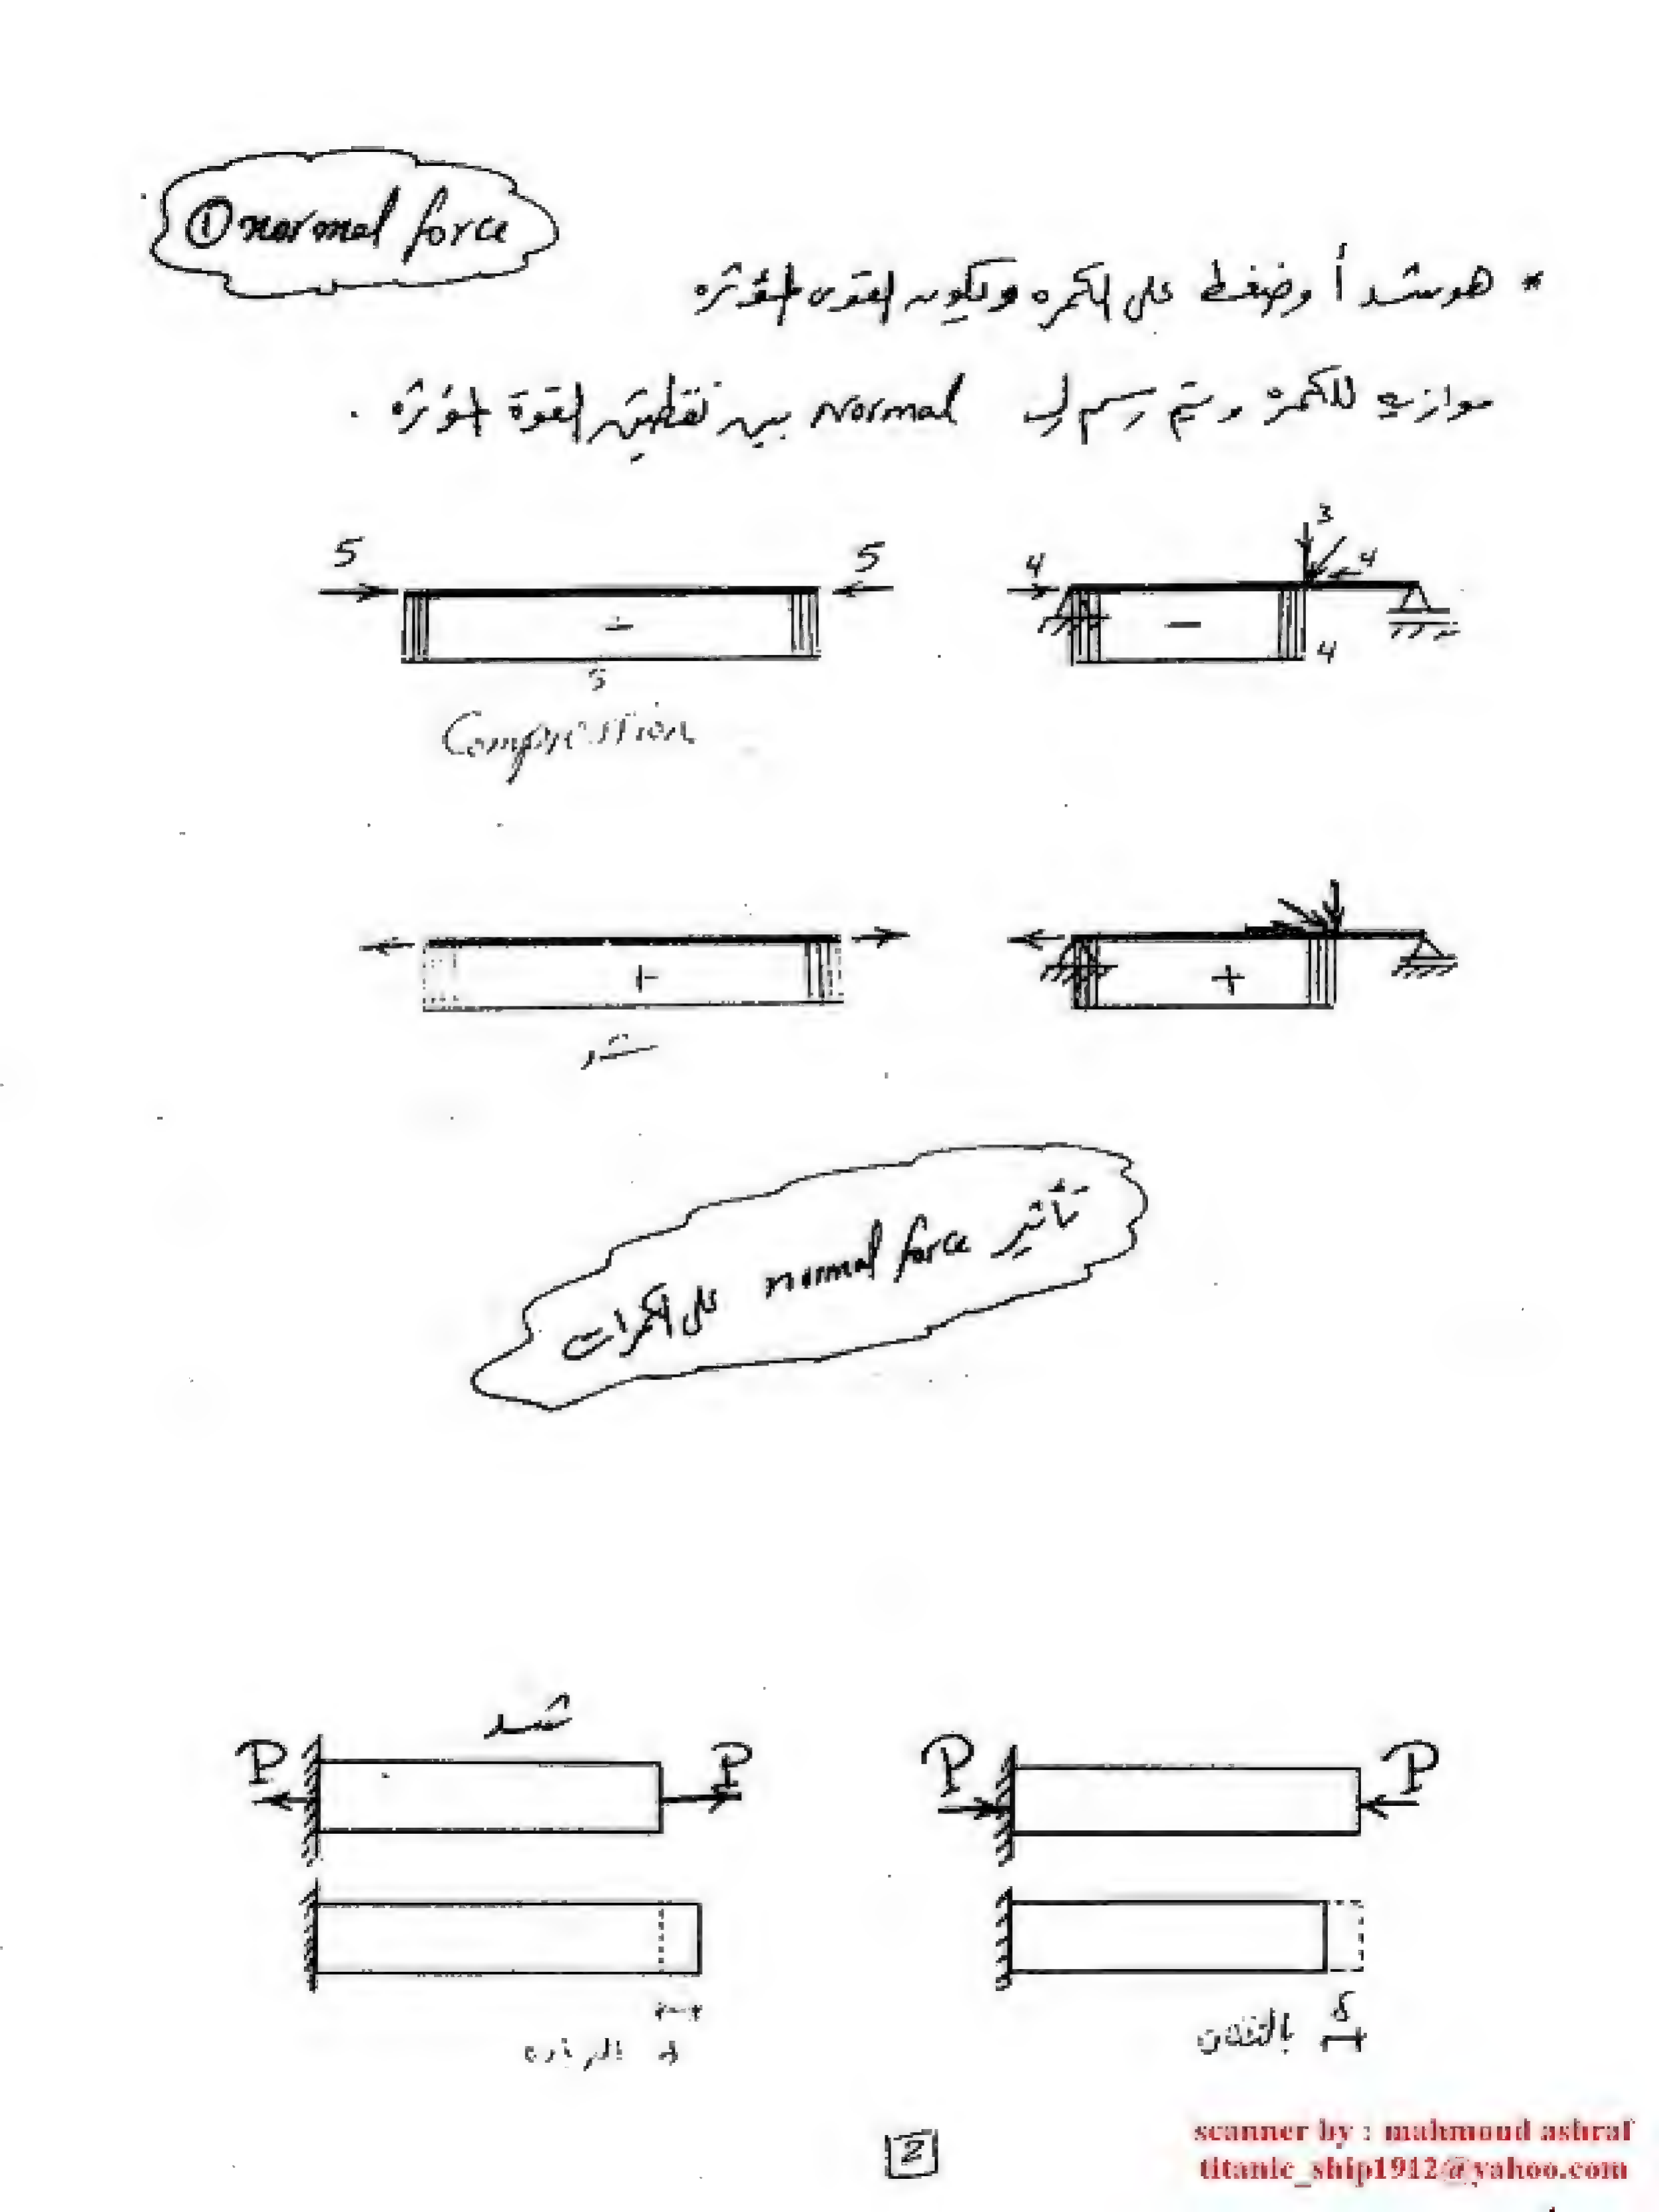 ① normal force
* هو شد أو ضغط على الكمره وتكون القوى المؤثره
موازيه للكمره ويتم رسم ال Normal بين نقطتين القوة المؤثره .
5 5
4 3 4
- -
5 4
Compression
+ +
شد
تأثير normal force على الكمرات
شد
P P P P
δ الزياده
δ بالنقصان
2
scanner by : mahmoud ashraf
titanic_ship1912@yahoo.com